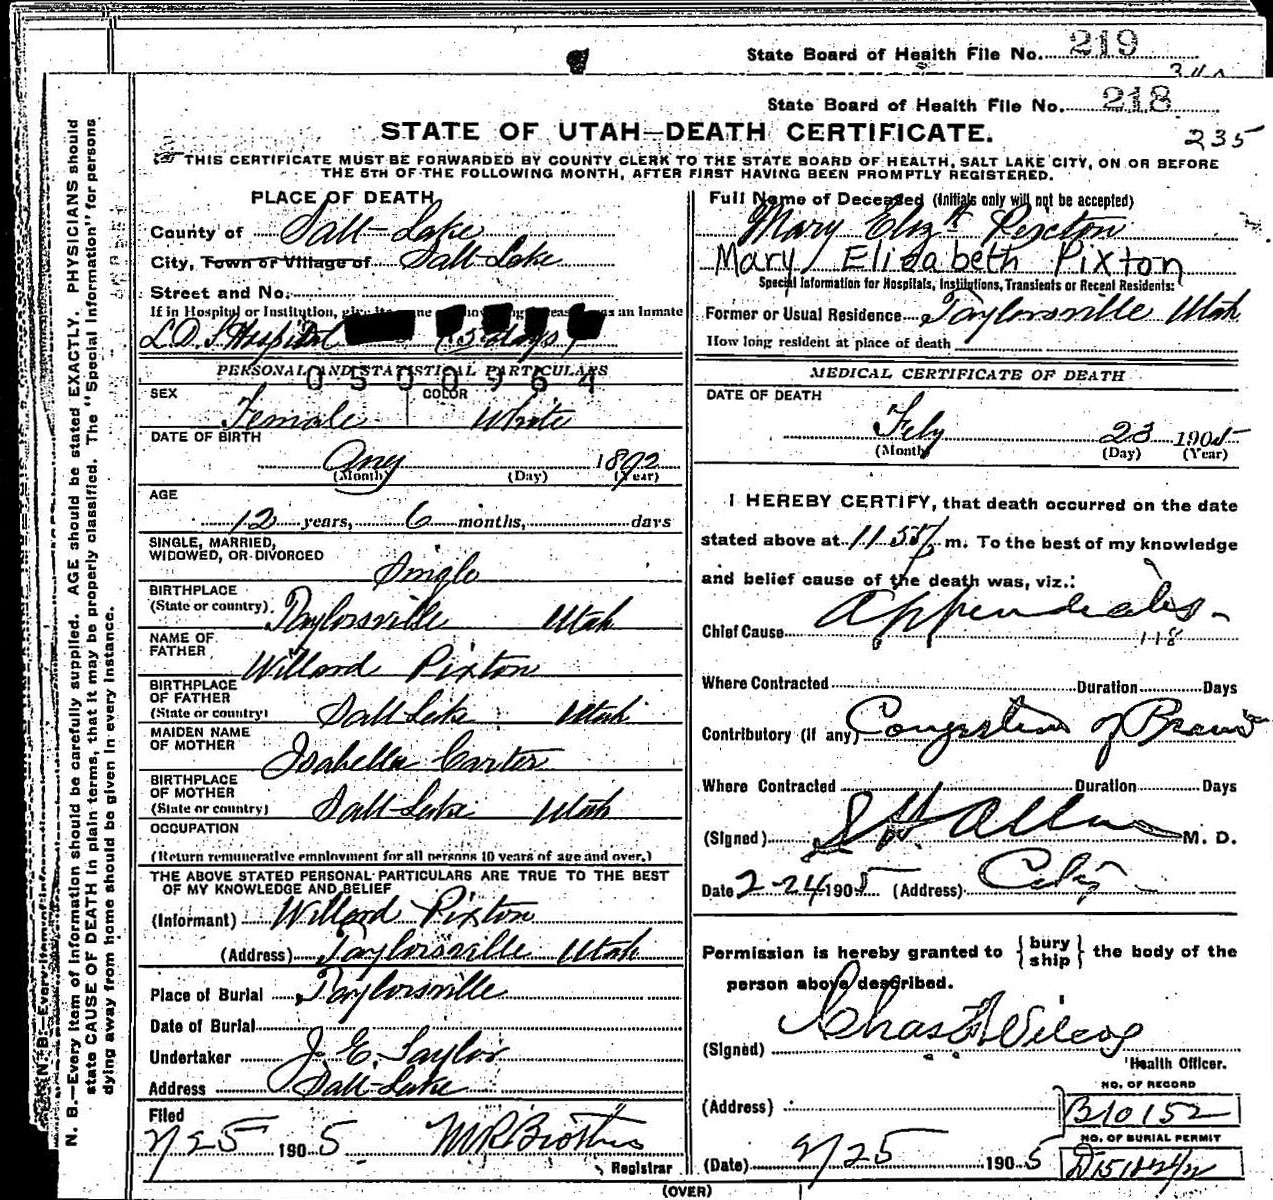 State Board of Health File No. 219
State Board of Health File No. 218
STATE OF UTAH—DEATH CERTIFICATE.
235
THIS CERTIFICATE MUST BE FORWARDED BY COUNTY CLERK TO THE STATE BOARD OF HEALTH, SALT LAKE CITY, ON OR BEFORE
THE 5TH OF THE FOLLOWING MONTH, AFTER FIRST HAVING BEEN PROMPTLY REGISTERED.
N. B.—Every item of information should be carefully supplied. AGE should be stated EXACTLY. PHYSICIANS should
state CAUSE OF DEATH in plain terms, that it may be properly classified. The "Special Information" for persons
dying away from home should be given in every instance.
PLACE OF DEATH
County of Salt Lake
City, Town or Village of Salt Lake
Street and No.
If in Hospital or Institution, as an Inmate
L.D.S Hospital (3 days)
PERSONAL AND STATISTICAL PARTICULARS
0500964
SEX COLOR
Female White
DATE OF BIRTH
Aug 1892
(Month) (Day) (Year)
AGE
12 years, 6 months, days
SINGLE, MARRIED,
WIDOWED, OR DIVORCED
Single
BIRTHPLACE
(State or country) Taylorsville Utah
NAME OF
FATHER
Willard Pixton
BIRTHPLACE
OF FATHER
(State or country) Salt Lake Utah
MAIDEN NAME
OF MOTHER Isabella Carter
BIRTHPLACE
OF MOTHER
(State or country) Salt Lake Utah
OCCUPATION
(Return remunerative employment for all persons 10 years of age and over.)
THE ABOVE STATED PERSONAL PARTICULARS ARE TRUE TO THE BEST
OF MY KNOWLEDGE AND BELIEF
(Informant) Willard Pixton
(Address) Taylorsville Utah
Place of Burial Taylorsville
Date of Burial
Undertaker J. E. Taylor
Address Salt Lake
Filed
2/25 1905 Registrar
Full Name of Deceased (Initials only will not be accepted)
Mary Elizth Pixton
Mary Elizabeth Pixton
Special Information for Hospitals, Institutions, Transients or Recent Residents:
Former or Usual Residence Taylorsville Utah
How long resident at place of death
MEDICAL CERTIFICATE OF DEATH
DATE OF DEATH
Feby 23 1905
(Month) (Day) (Year)
I HEREBY CERTIFY, that death occurred on the date
stated above at 11.55 P m. To the best of my knowledge
and belief cause of the death was, viz.:
Chief Cause Appendicitis
118
Where Contracted Duration Days
Contributory (if any) Congestion of Brain
Where Contracted Duration Days
(Signed) M. D.
Date 2-24 1905 (Address) City
Permission is hereby granted to { bury ship } the body of the
person above described.
(Signed) Chas F Wilcox
Health Officer.
(Address)
NO. OF RECORD
B10152
NO. OF BURIAL PERMIT
(Date) 2/25 1905
(OVER)